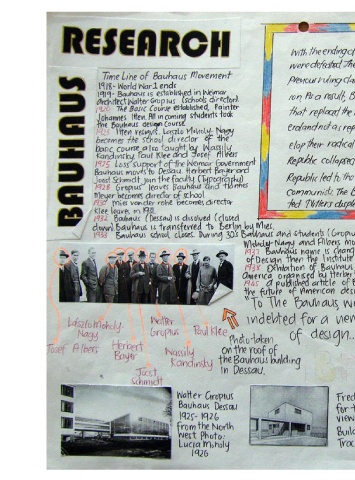 RESEARCH
BAUHAUS
Time Line of Bauhaus Movement
1918- World War 1 ends
1919- Bauhaus is established in Weimar
architect Walter Gropius (schools director)
1920 The Basic Course established, Painter
Johannes Itten. All in coming students took
the Bauhaus design course.
1923 Itten resigns. Laszlo Moholy Nagy
becomes the school director of the
Basic course also taught by Wassily
Kandinsky, Paul Klee and Josef Albers
1925 Loss support of the Weimar Government
Bauhaus moves to Dessau. Herbert Bayer and
Joost Schmidt join the faculty (Typography)
1928 Gropius leaves Bauhaus and Hannes
Meyer becomes director of school
1930 Mies vander rohe becomes director
Klee leaves in 1931
1932 Bauhaus (Dessau) is dissolved (closed
down) Bauhaus is transferred to Berlin by Mies.
1933 Bauhaus school closes. During 30's Bauhaus and students (Gropius
Moholy-Nagy and Albers
1937 Bauhaus name is
of Design then the Institute
1938 Exhibition of Bauhaus
America organised by Herbert
1945 published article
the future of American
To The Bauhaus w
indebted for a view
of design...
with the ending
were defeated. The
ion. As a result, B
that replaced the
Republic collapsed
Republic led to the
communists. The
Laszlo Moholy-
Nagy
Walter
Gropius
Paul Klee
Josef Albers
Herbert
Bayer
Wassily
Kandinsky
Joost
Schmidt
Photo-taken
on the roof of
the Bauhaus building
in Dessau.
Walter Gropius
Bauhaus Dessau
1925-1926
from the North
West Photo:
Lucia Moholy
1926
Fred
for t
view
Build